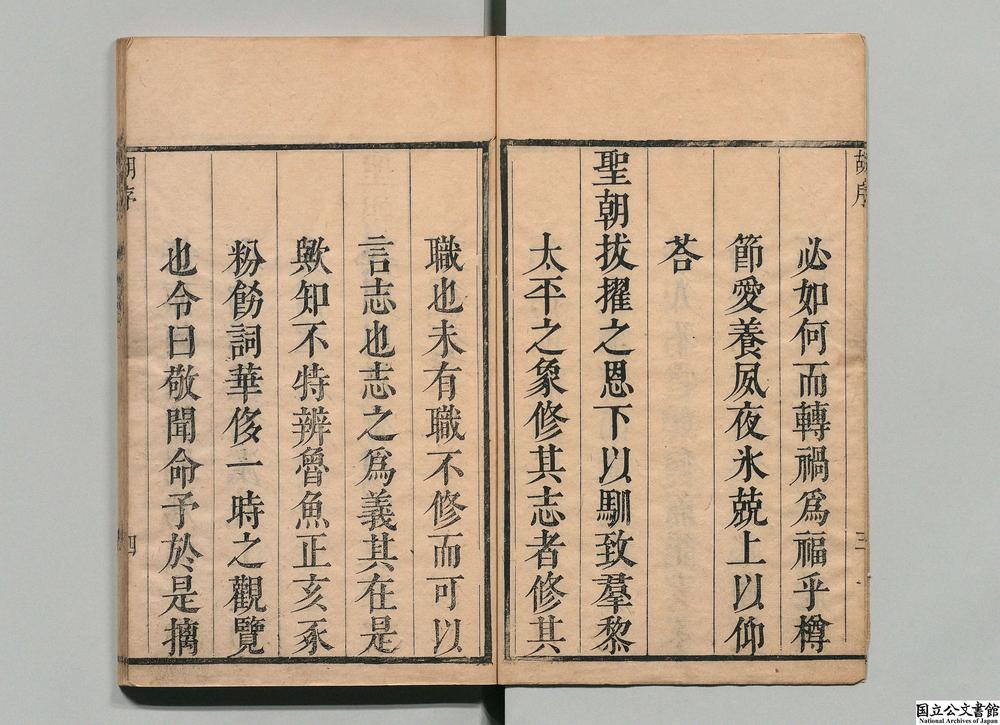 胡序
三
必如何而轉禍爲福乎樽
節愛養夙夜氷兢上以仰
荅
聖朝拔擢之恩下以馴致羣黎
太平之象修其志者修其
職也未有職不修而可以
言志也志之爲義其在是
歟知不特辨魯魚正亥豕
粉飾詞華侈一時之觀覽
也令曰敬聞命予於是摛
胡序
四
国立公文書館
National Archives of Japan